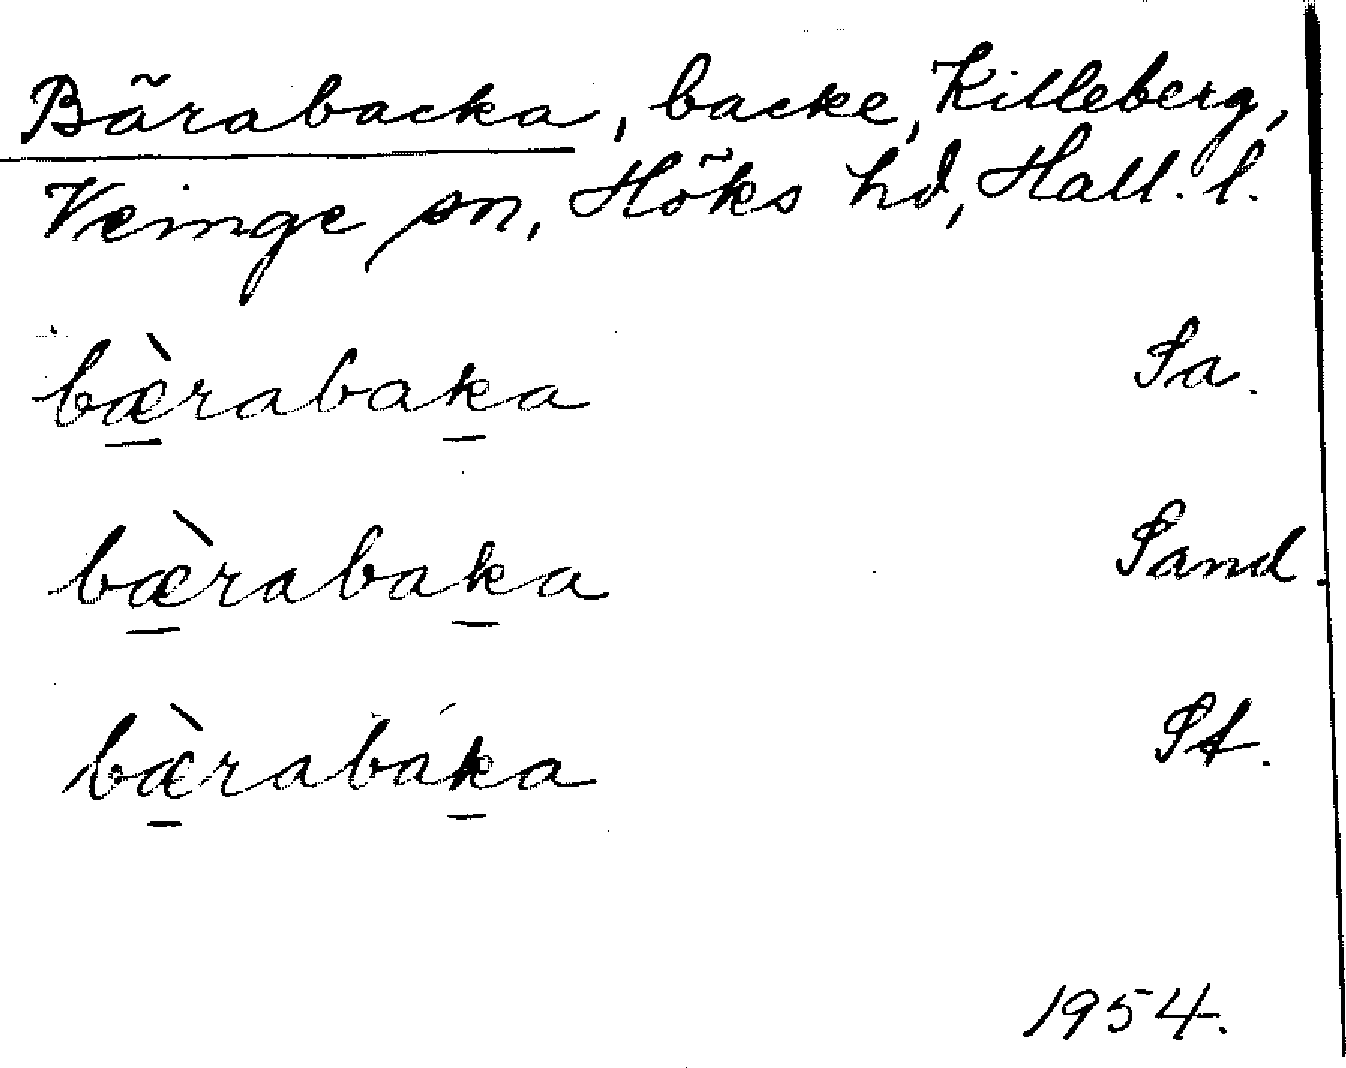 Bärabacka, backe, Killeberg,
Veinge sn, Höks hd, Hall. l.
bæ̀rabaka Sa.
bæ̀rabaka Sand.
bæ̀rabáka St.
1954.